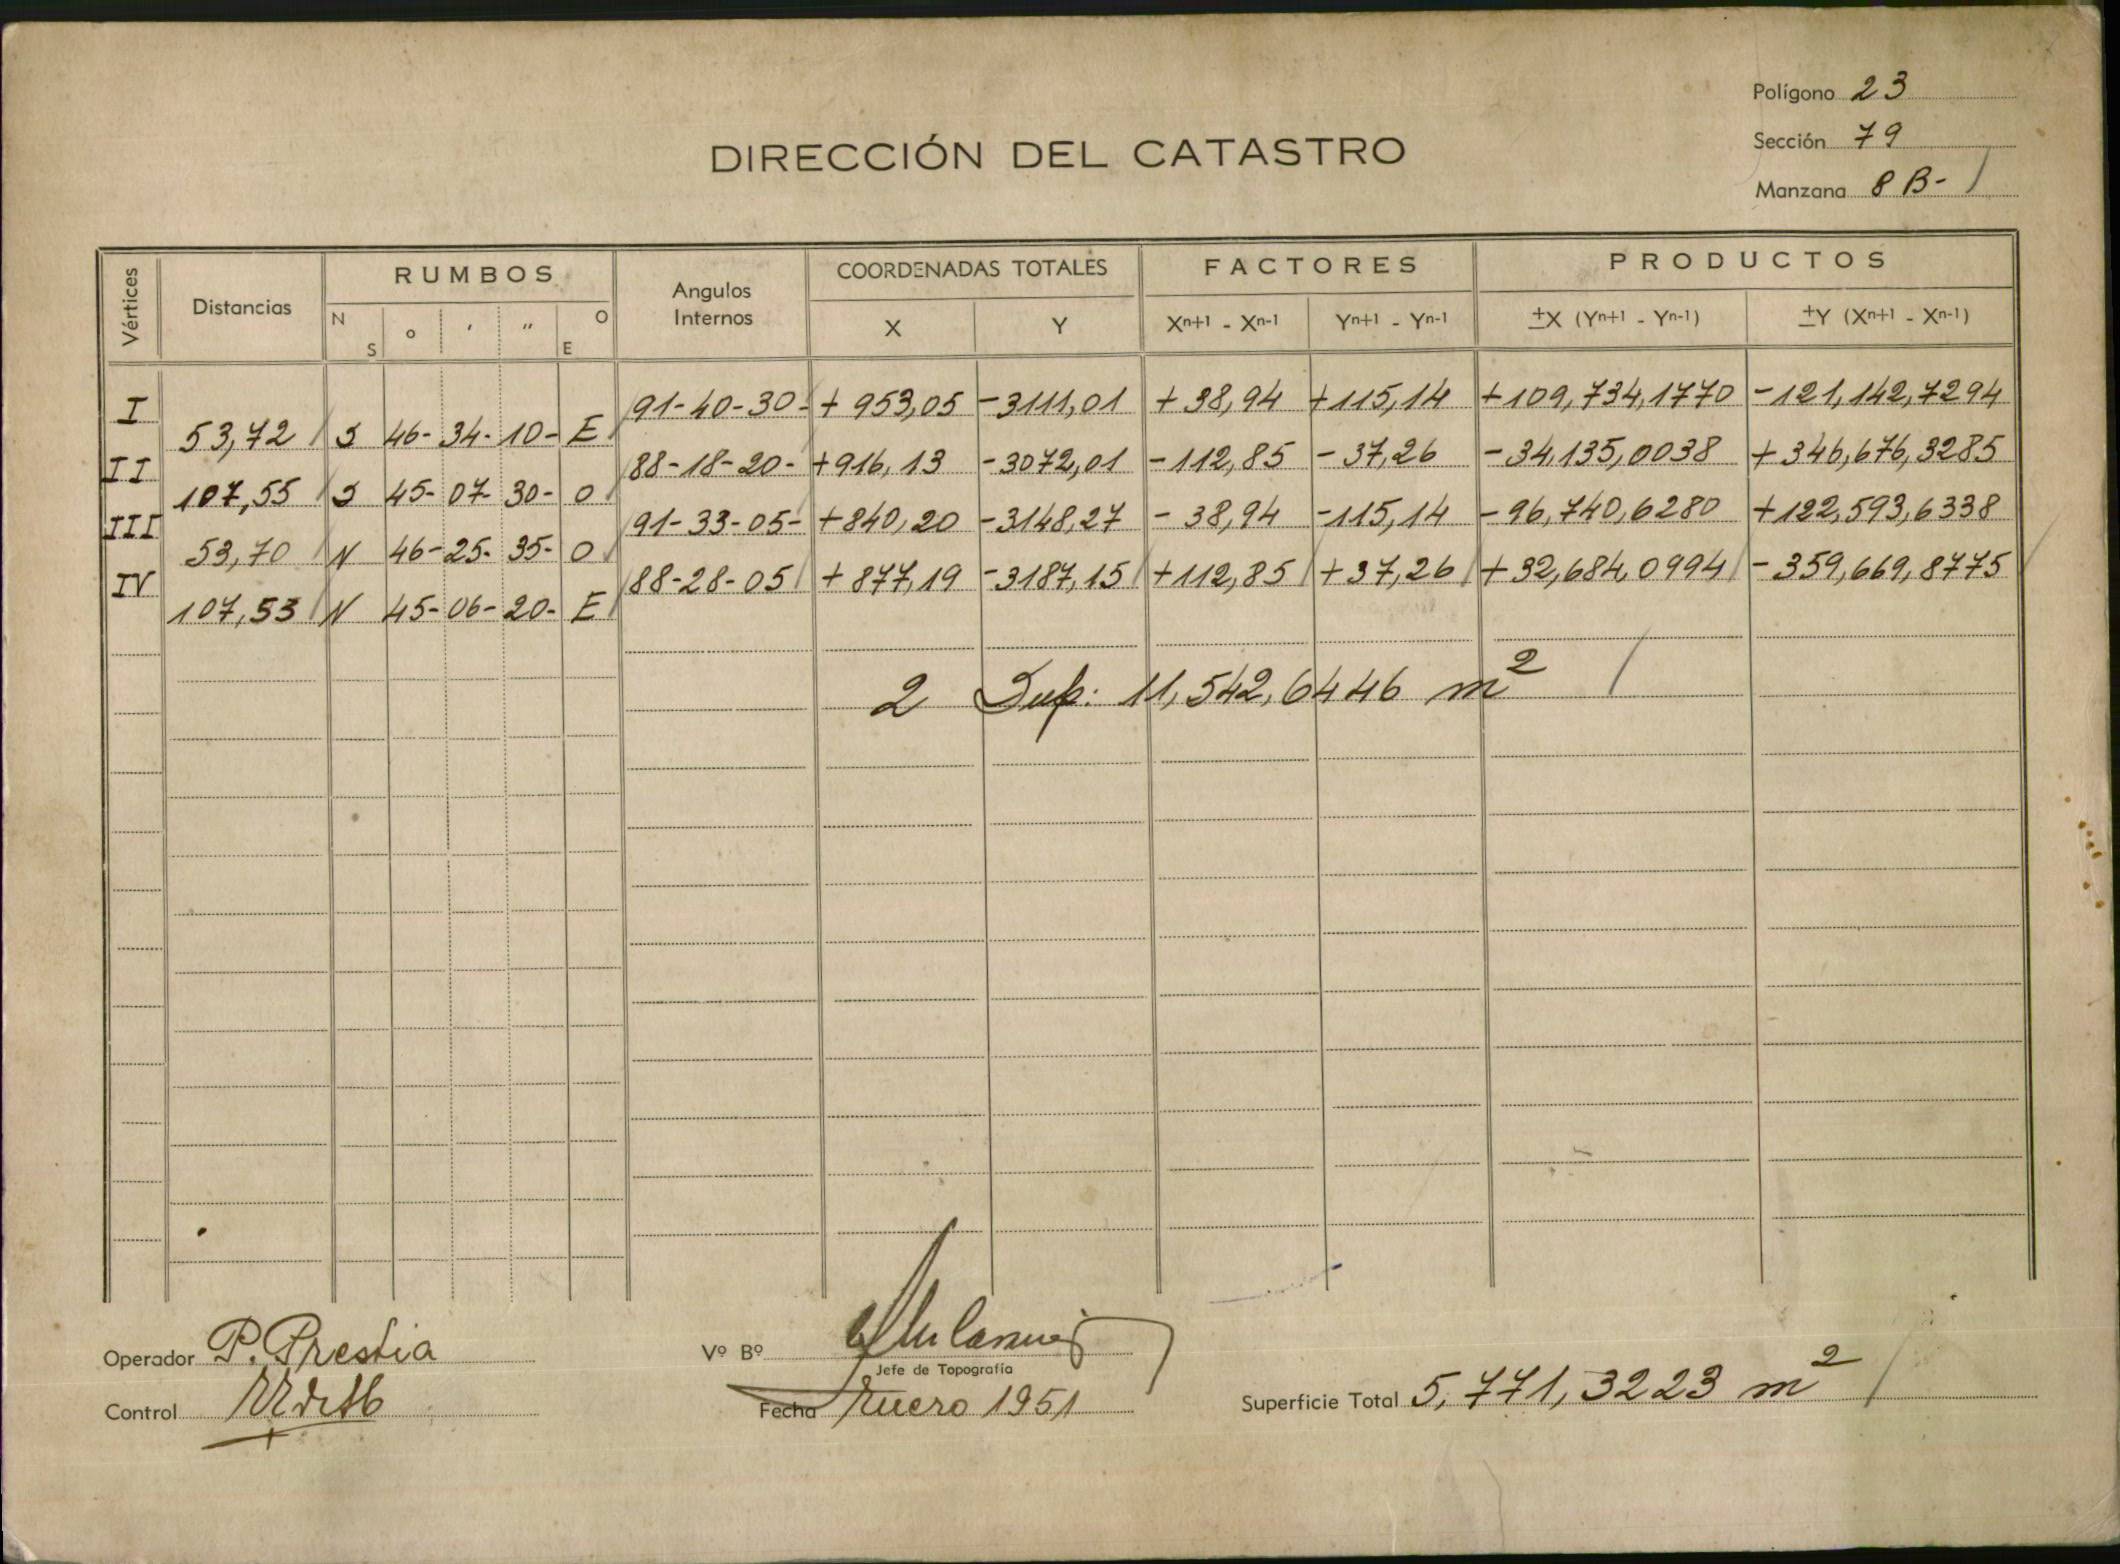 Polígono 23
DIRECCIÓN DEL CATASTRO
Sección 79
Manzana 8 B-
Vértices Distancias RUMBOS Angulos Internos COORDENADAS TOTALES FACTORES PRODUCTOS
N S o ' " O E X Y Xn+1 - Xn-1 Yn+1 - Yn-1 ±X (Yn+1 - Yn-1) ±Y (Xn+1 - Xn-1)
I 91-40-30- + 953,05 -3111,01 + 38,94 +115,14 +109,734,1770 -121,142,7294
53,72 S 46- 34- 10- E
II 88-18-20- +916,13 -3072,01 -112,85 -37,26 -34,135,0038 +346,676,3285
107,55 S 45- 07- 30- O
III 91-33-05- +840,20 -3148,27 - 38,94 -115,14 -96,740,6280 +122,593,6338
53,70 N 46- 25- 35- O
IV 88-28-05 + 877,19 -3187,15 +112,85 +37,26 +32,684,0994 -359,669,8775
107,53 N 45- 06- 20- E
2 Sup: 11,542,6446 m²
Operador P. Prestia
Vº Bº
Jefe de Topografía
Control
Fecha Enero 1951
Superficie Total 5,771,3223 m²